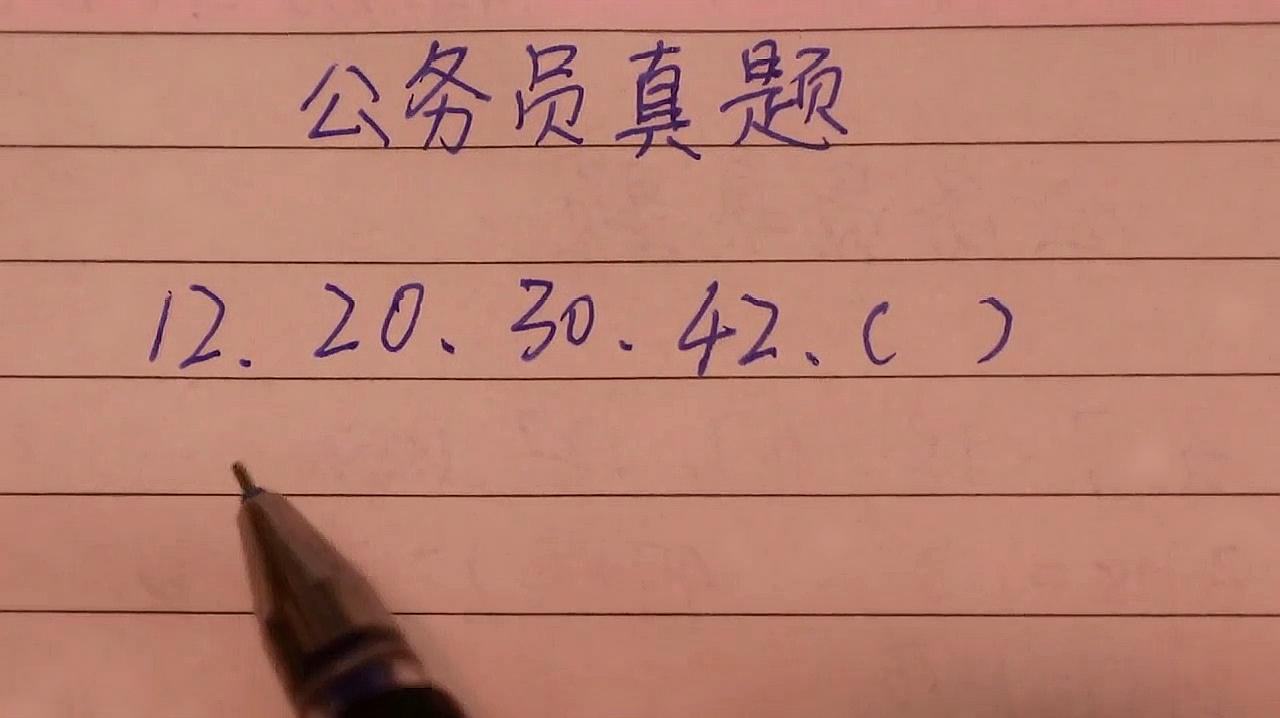 公务员真题
12、20、30、42、( )